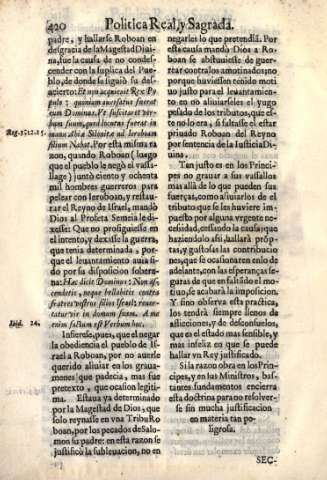 420 Politica Real, y Sagrada.
padre, y hallarse Roboan en
desgracia de la Magestad Diui-
na, fue la causa de no condes-
cender con la suplica del Pue-
blo, de donde se siguiò su des-
acierto: Et non acquieuit Rex Po-
pulo: quoniam auersatus fuerat
eum Dominus, vt suscitaret ver-
bum suum, quod locutus fuerat in
Reg. 3. c. 12. 15.
manu Ahia Silonitæ ad Ieroboam
filium Nabat. Por esta misma ra
zon, quando Roboan (luego
que el pueblo le negò el vassa-
llage) juntò ciento y ochenta
mil hombres guerreros para
pelear con Ieroboan, y restau-
rar el Reyno de Israel, mandò
Dios al Profeta Semeia le di-
xesse: Que no prosiguiesse en
el intento, y dexasse la guerra,
que tenia determinada, por-
que el leuantamiento auia si-
do por su disposicion sobera-
na: Hæc dicit Dominus: Non as-
cendetis, neque bellabitis contra
fratres vestros filios Israel: reuer-
tatur vir in domum suam. A me
Ibid. 24.
enim factum est Verbum hoc.
Infierese, pues, que el negar
la obediencia el pueblo de Is-
rael a Roboan, por no auerle
querido aliuiar en los graua-
menes que padecia, mas fue
pretexto, que ocasion legiti-
ma. Estaua ya determinado
por la Magestad de Dios, que
solo reynasse en vna Tribu Ro
boan, por los pecados de Salo-
mon su padre: en esta razon se
justificò la subleuacion, no en
negarles lo que pretendia. Por
esta causa mandò Dios a Ro-
boan se abstuuiesse de guer-
rear contra los amotinados; no
porque huuiessen tenido moti
uo justo para el leuantamien-
to en no aliuiarseles el yugo
pesado de los tributos, que es-
te no lo era, si faltasse el estar
priuado Roboan del Reyno
por sentencia de la Iusticia Diui
na.
Tan justo es en los Princi-
pes no grauar a sus vassallos
mas allà de lo que pueden sus
fuerças, como aliuiarlos de el
tributo que se les huuiere im-
puesto por alguna vrgente ne-
cessidad, cessando la causa; que
haziendolo assi, hallarà prōp-
tas, y gustosas las contribucio-
nes, que se ocasionaren en lo de
adelante, con las esperanças se-
guras de que en faltando el mo-
tiuo, se acabarà la imposicion.
Y sino obserua esta practica,
los tendrà siempre llenos de
afficciones, y de desconsuelos,
que es el estado mas sensible, y
mas infeliz en que se puede
hallar vn Rey justificado.
Si la razon obra en los Prin-
cipes, y en los Ministros, bas-
tantes fundamentos encierra
esta doctrina para no resolver-
se sin mucha justificacion
en materia tan pe-
ligrosa.
SEC-